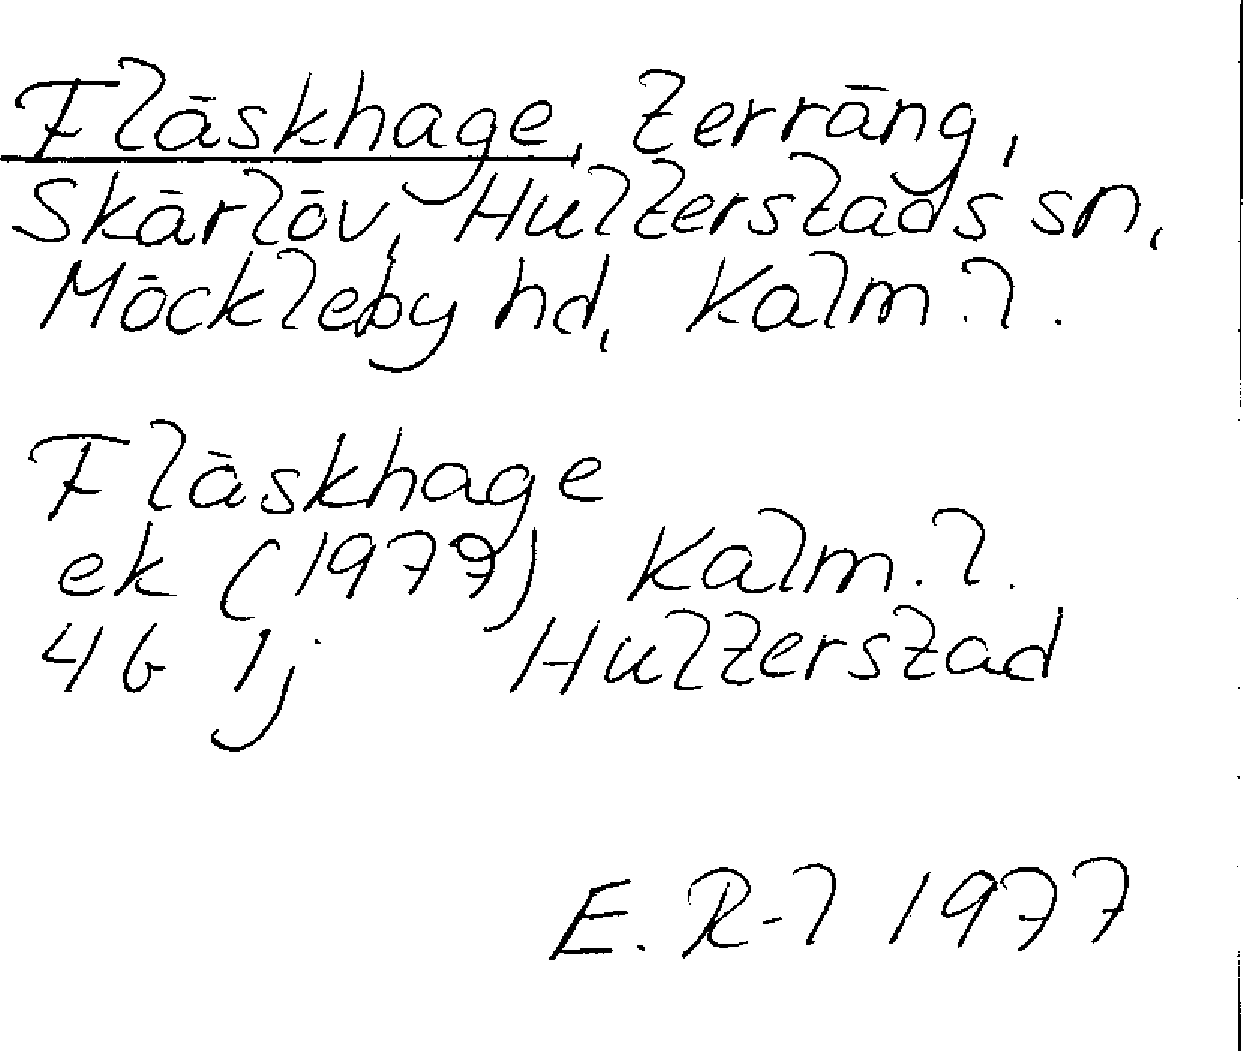 Fläskhage, terräng,
Skärlöv, Hulterstads sn,
Möckleby hd, Kalm. l.
Fläskhage
ek (1977) Kalm. l.
4G 1j Hulterstad
E. R-l 1977